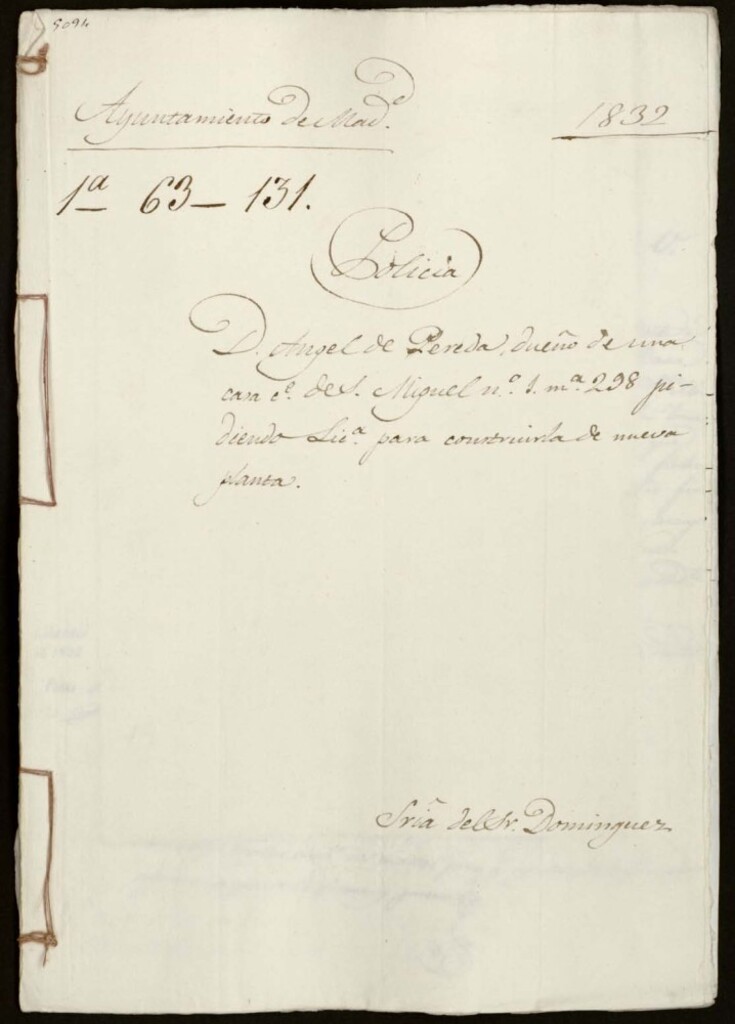 5094
Ayuntamiento de Mad.d
1832
1ª 63 – 131.
Policia
D. Angel de Pereda, dueño de una
casa c.e de S. Miguel n.º 1. m.ª 298 pi-
diendo Lic.ª para construirla de nueva
planta.
Sria del Sr. Dominguez